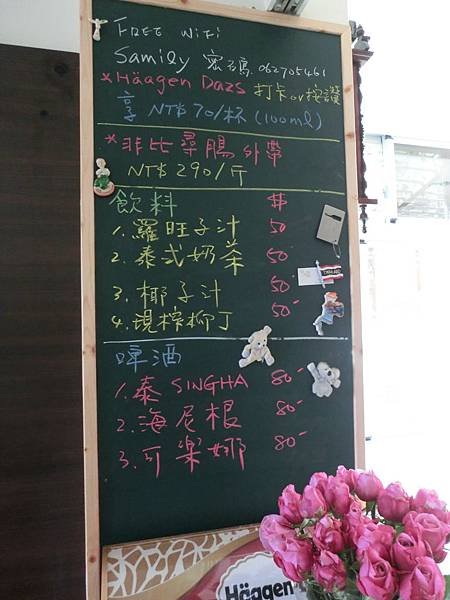 FREE WiFi
Samily 密碼. 062705461
*Häagen Dazs 打卡 or 按讚
享 NT$ 70/杯 (100ml)
*非比尋腸外帶
NT$ 290/斤
飲料 $
1. 羅旺子汁 50
2. 泰式奶茶 50
3. 椰子汁 50
4. 現榨柳丁 50
啤酒
1. 泰 SINGHA 80
2. 海尼根 80
3. 可樂娜 80
Häagen